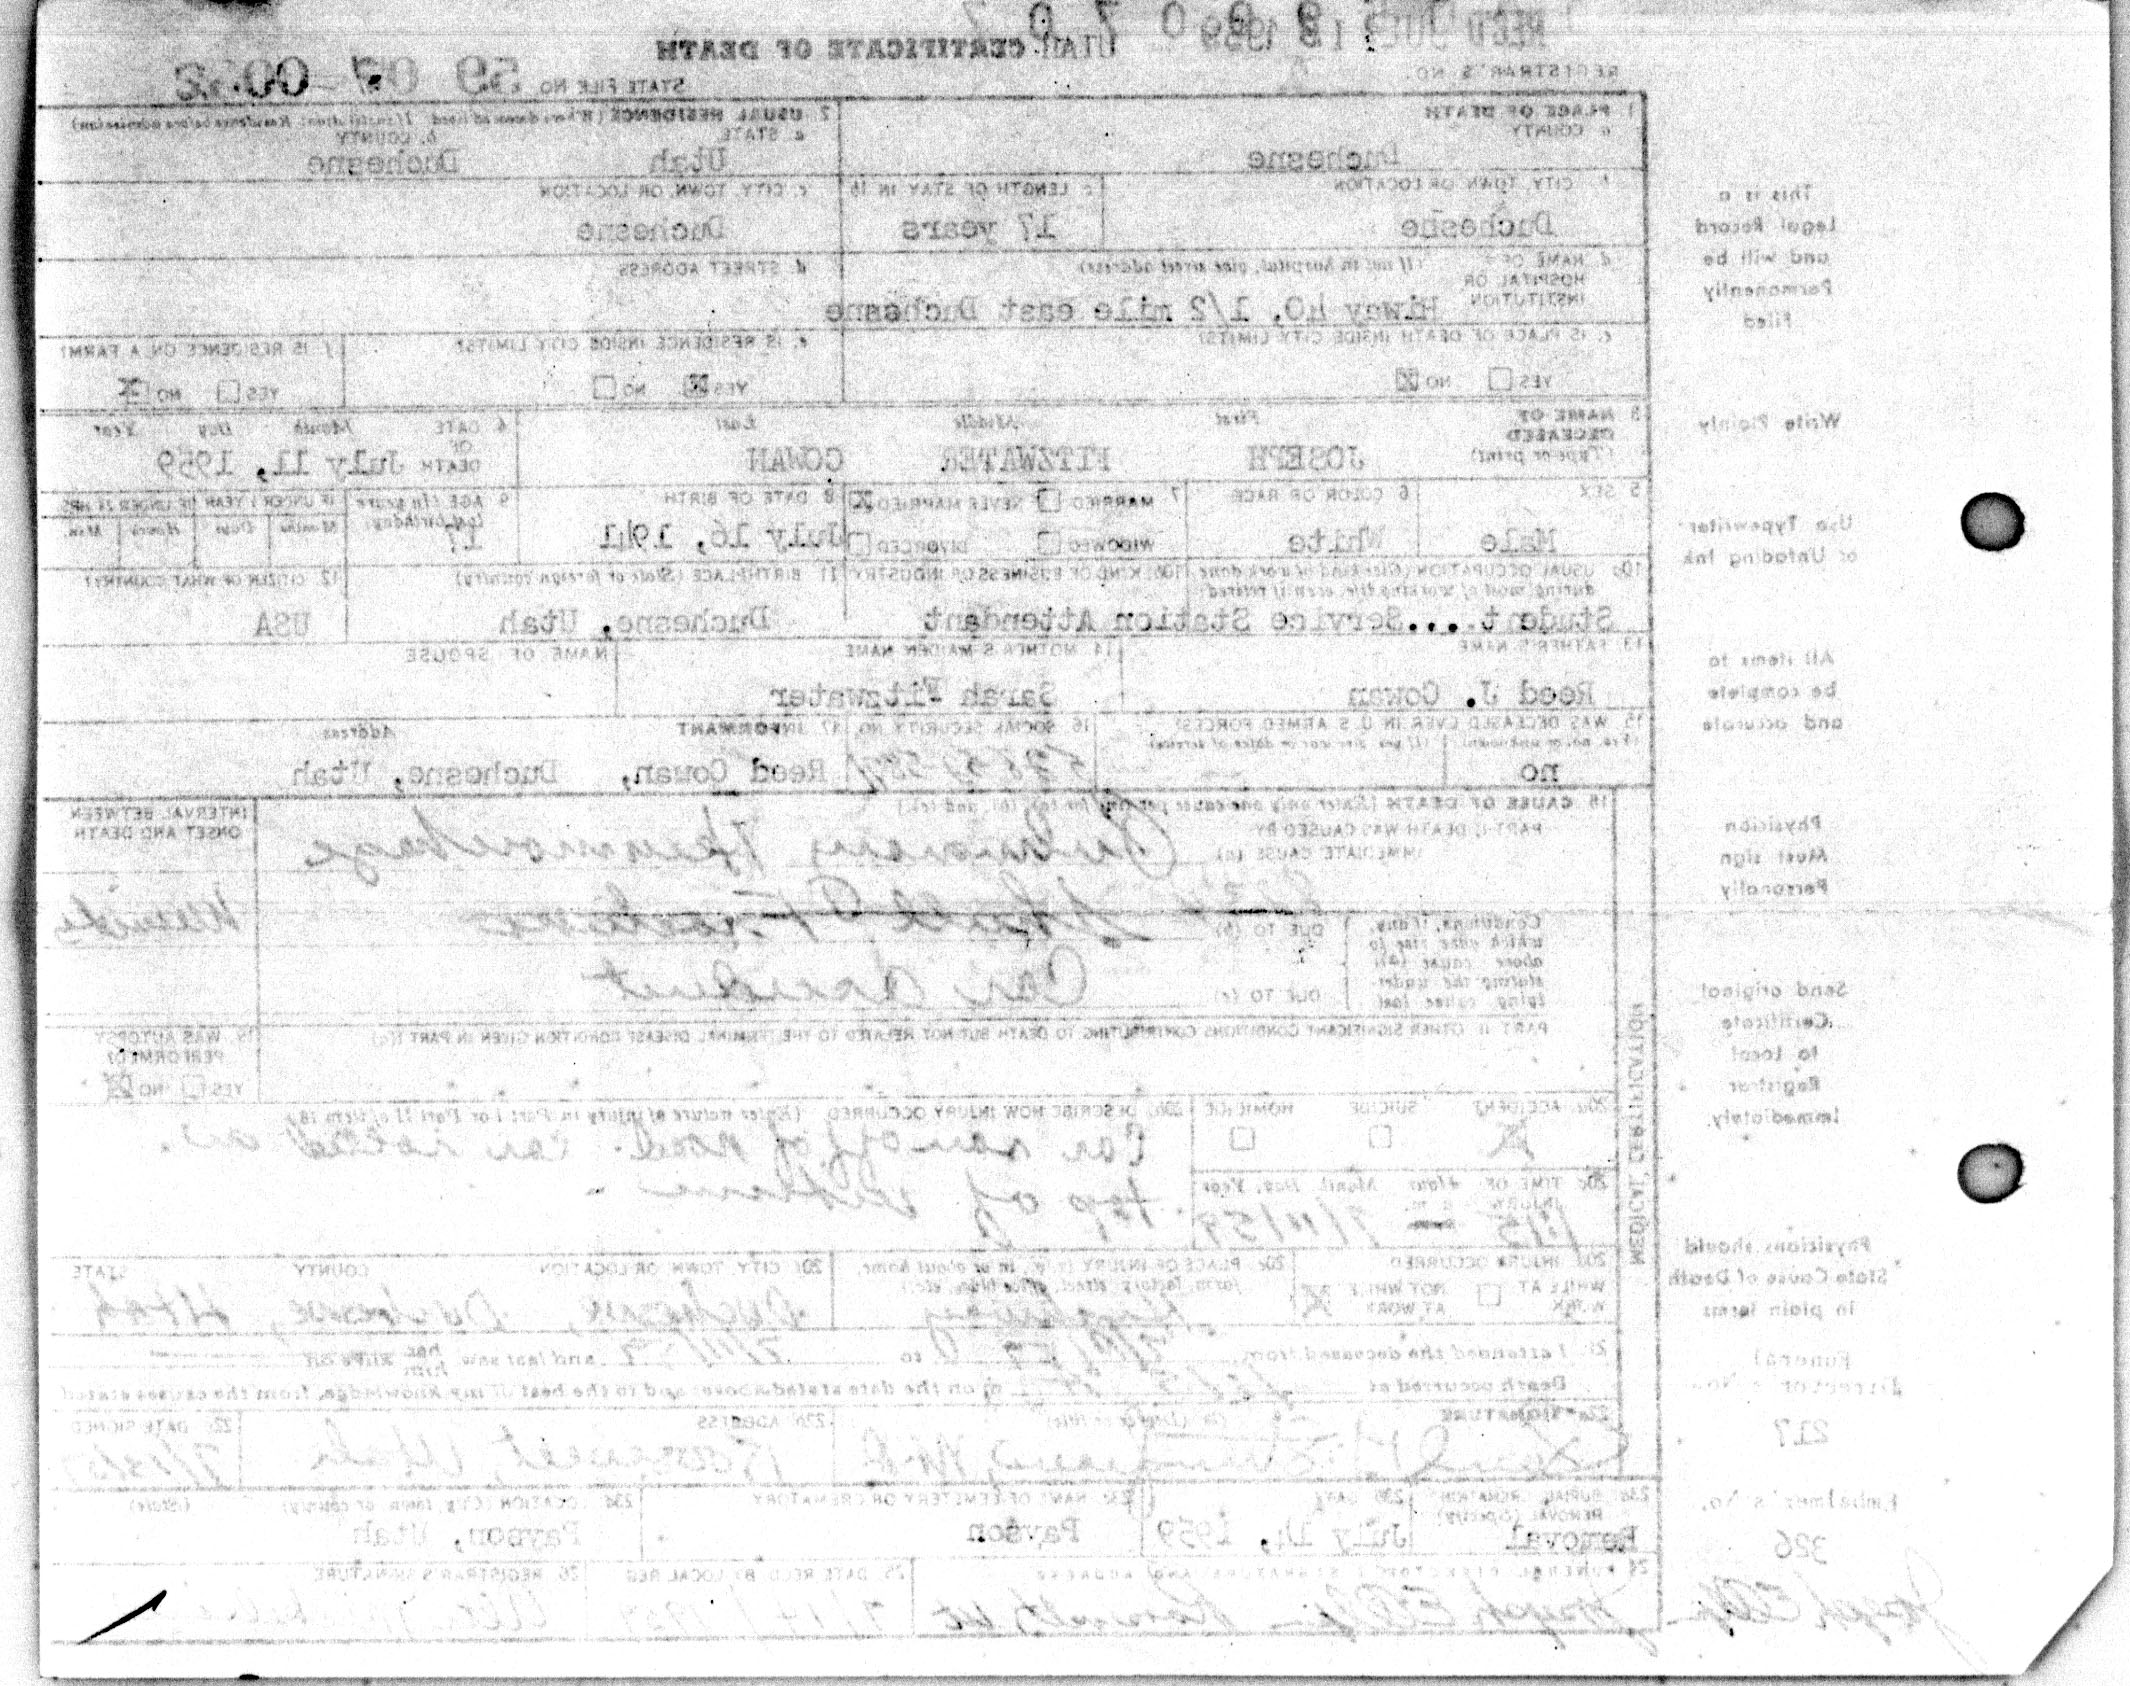 REC'D JUL 13 1959
UTAH CERTIFICATE OF DEATH
REGISTRAR'S NO.
STATE FILE NO. 59 07
1. PLACE OF DEATH
a. COUNTY
Duchesne
2. USUAL RESIDENCE (Where deceased lived. If institution: Residence before admission)
a. STATE
Utah
b. COUNTY
Duchesne
b. CITY, TOWN OR LOCATION
Duchesne
c. LENGTH OF STAY IN 1b
17 years
c. CITY, TOWN, OR LOCATION
Duchesne
d. NAME OF HOSPITAL OR INSTITUTION (If not in hospital, give street address)
Hiway 40, 1/2 mile east Duchesne
d. STREET ADDRESS
e. IS PLACE OF DEATH INSIDE CITY LIMITS?
YES NO X
e. IS RESIDENCE INSIDE CITY LIMITS?
YES X NO
f. IS RESIDENCE ON A FARM?
YES NO X
3. NAME OF DECEASED (Type or print)
First Middle Last
JOSEPH FITZWATER COWAN
4. DATE OF DEATH Month Day Year
July 11, 1959
5. SEX
Male
6. COLOR OR RACE
White
7. MARRIED NEVER MARRIED X
WIDOWED DIVORCED
8. DATE OF BIRTH
July 16, 1941
9. AGE (In years last birthday)
17
IF UNDER 1 YEAR IF UNDER 24 HRS.
Months Days Hours Min.
10a. USUAL OCCUPATION (Give kind of work done during most of working life, even if retired)
10b. KIND OF BUSINESS OR INDUSTRY
Student...Service Station Attendant
11. BIRTHPLACE (State or foreign country)
Duchesne, Utah
12. CITIZEN OF WHAT COUNTRY?
USA
13. FATHER'S NAME
Reed J. Cowan
14. MOTHER'S MAIDEN NAME
Sarah Fitzwater
NAME OF SPOUSE
15. WAS DECEASED EVER IN U.S. ARMED FORCES?
(Yes, no, or unknown) (If yes, give war or dates of service)
no
16. SOCIAL SECURITY NO.
17. INFORMANT Address
Reed Cowan, Duchesne, Utah
18. CAUSE OF DEATH (Enter only one cause per line for (a), (b), and (c).)
PART I. DEATH WAS CAUSED BY
IMMEDIATE CAUSE (a)
Pulmonary Hemmorrhage
INTERVAL BETWEEN ONSET AND DEATH
Conditions, if any, which gave rise to above cause (a) stating the underlying cause last
DUE TO (b)
Fractures
DUE TO (c)
Car Accident
PART II. OTHER SIGNIFICANT CONDITIONS CONTRIBUTING TO DEATH BUT NOT RELATED TO THE TERMINAL DISEASE CONDITION GIVEN IN PART I(a)
19. WAS AUTOPSY PERFORMED?
YES NO X
20a. ACCIDENT SUICIDE HOMICIDE
X
20b. DESCRIBE HOW INJURY OCCURRED (Enter nature of injury in Part I or Part II of item 18.)
Car ran off of road. Car rolled on
top of victim -
20c. TIME OF INJURY Hour Month, Day, Year
7/11/59
20d. INJURY OCCURRED
WHILE AT WORK NOT WHILE AT WORK X
20e. PLACE OF INJURY (e.g., in or about home, farm, factory, street, office bldg., etc.)
Highway
20f. CITY, TOWN OR LOCATION COUNTY STATE
Duchesne, Duchesne, Utah
21. I attended the deceased from 7/11/59 to 7/11/59 and last saw her him alive on
Death occurred at m on the date stated above; and to the best of my knowledge, from the causes stated
22a. SIGNATURE (Degree or title)
22b. ADDRESS
Roosevelt, Utah
22c. DATE SIGNED
7/13/59
23a. BURIAL, CREMATION, REMOVAL (Specify)
Removal
23b. DATE
July 14, 1959
23c. NAME OF CEMETERY OR CREMATORY
Payson
23d. LOCATION (City, town, or county) (State)
Payson, Utah
24. FUNERAL DIRECTOR'S SIGNATURE AND ADDRESS
25. DATE REC'D BY LOCAL REG.
26. REGISTRAR'S SIGNATURE
MEDICAL CERTIFICATION
This is a
Legal Record
and will be
Permanently
Filed
Write Plainly
Use Typewriter
or Unfading Ink
All items to
be complete
and accurate
Physician
Must sign
Personally
Send original
Certificate
to local
Registrar
Immediately.
Physicians should
State Cause of Death
in plain terms
Funeral
Director's No.
217
Embalmer's No.
326